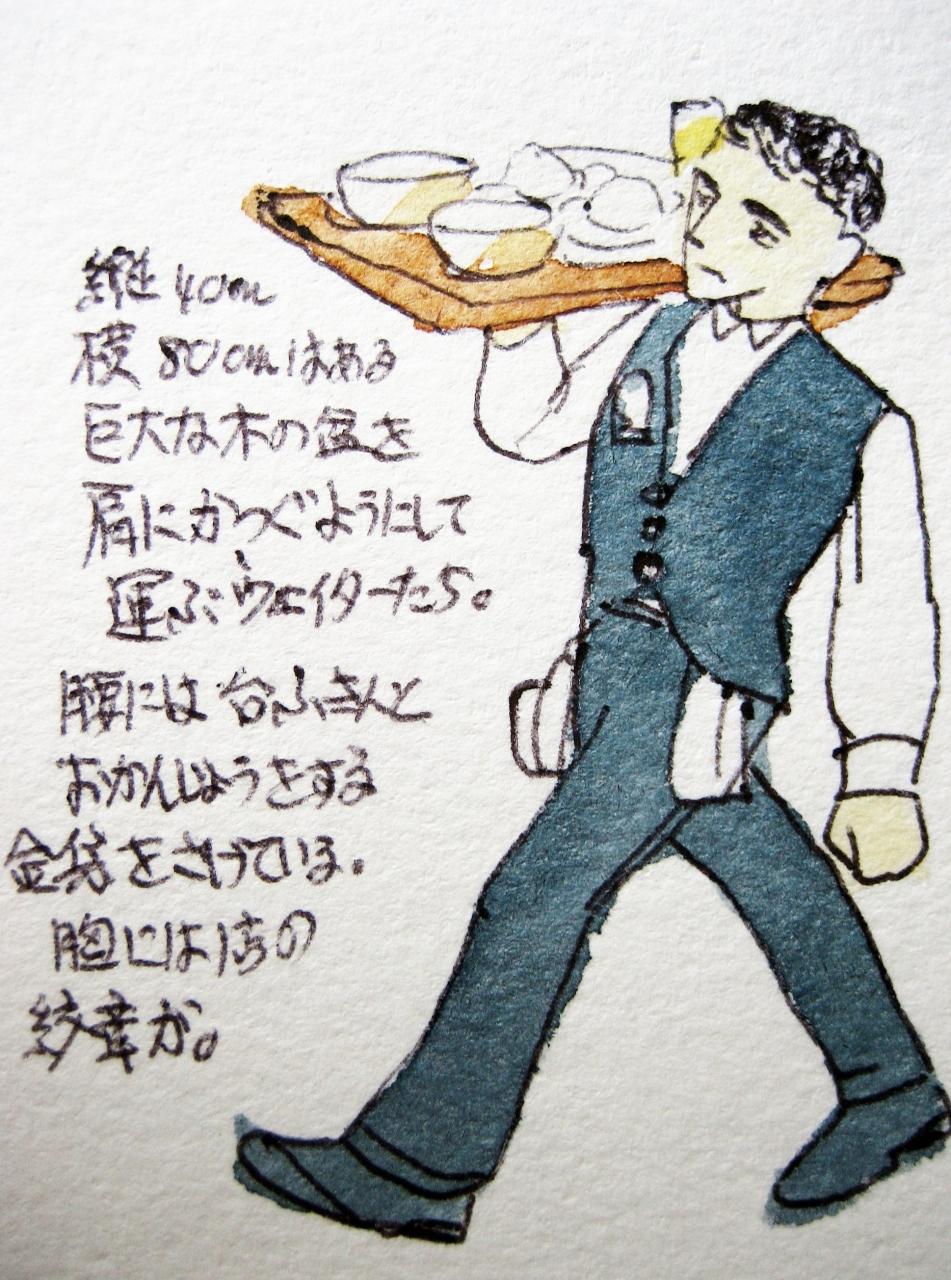 縦40cm
横80cmはある
巨大な木の盆を
肩にかつぐようにして
運ぶウェイターたち。
腰には台ふきんと
おかんじょうをする
金袋をさげている。
胸には店の
紋章が。